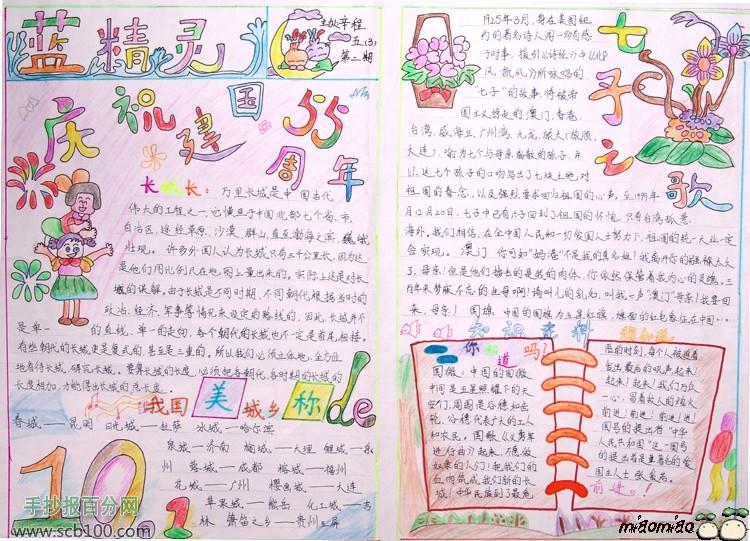 蓝精灵
五(3)
第二期
庆祝建国55周年
长城长:
万里长城是中国古代
伟大的工程之一,它横亘于中国北部七个省、市、
自治区,途经草原、沙漠、群山,直至渤海之滨,巍峨
壮观。 许多外国人认为长城只有三千公里长,因为这
是他们用比例尺在地图上量出来的。实际上这是对长
城的误解。由于长城是不同时期、不同朝代根据当时的
政治、经济、军事等情况来设定的路线的,因此,长城并不
是单一的直线,单一的走向,各个朝代的长城也不一定是首尾相接。
有些朝代的长城更是复式的,甚至是三重的。所以我们必须立体地,全方位
地看待长城,研究长城。要算长城的长度,必须把各朝代、各时期的长城的
长度相加,才能得出长城的总长度。
我国美de城乡称
春城——昆明 日光城——拉萨 冰城——哈尔滨
泉城——济南 榆城——大理 鲤城——泉
州 蓉城——成都 榕城——福州
花城——广州 樱画城——大连
苹果城——熊岳 化工城——吉
林 箫笛之乡——贵州玉屏
10.1
手抄报百分网
www.scb100.com
七子之歌
1925年3月,身在美国纽
约的著名诗人闻一多有感
于时事,援引《诗经》中《邶
风·凯风》所咏唱的
“七子”的故事,将被帝
国主义掠走的澳门、香港、
台湾、威海卫、广州湾、九龙、旅大(旅顺、
大连),喻为七个与母亲离散的孩子,并
以这七个孩子的口吻写出了七块土地,对
祖国的眷念,以及强烈要求回归祖国的心声。至1999年
12月20日,七子中已有六子回到了祖国的怀抱,只有台湾孤悬
海外。我们相信,在全中国人民和一切爱国人士努力下,祖国的统一大业一定
会实现。 澳门 你可知“妈港”不是我的真名姓!我离开你的襁褓太久
了,母亲!但是他们掳去的是我的肉体,你依然保管着我内心的灵魂。三
百年来梦寐不忘的生母啊!请叫儿的乳名,叫我一声“澳门”母亲!我要回
来,母亲! 国旗:中国的国旗为五星红旗,旗面的红色象征在中国…
知识百科
你知道吗!
国徽:中国的国徽
中间是五星照耀下的天
安门,周围是谷穗和齿
轮,谷穗代表广大的工人
和农民。国歌《义勇军
进行曲》起来,不愿做
奴隶的人们!把我们的
血肉筑成我们新的长
城!中华民族到了最危
险的时刻,每个人被迫着
发出最后的吼声。起来!
起来!起来!我们万众
一心,冒着敌人的炮火
前进!前进!前进!进!
国号的提出者“中华
人民共和国”这一国号
的提出者是著名的爱
国主人士张奚若。
前进。!
miaomiao